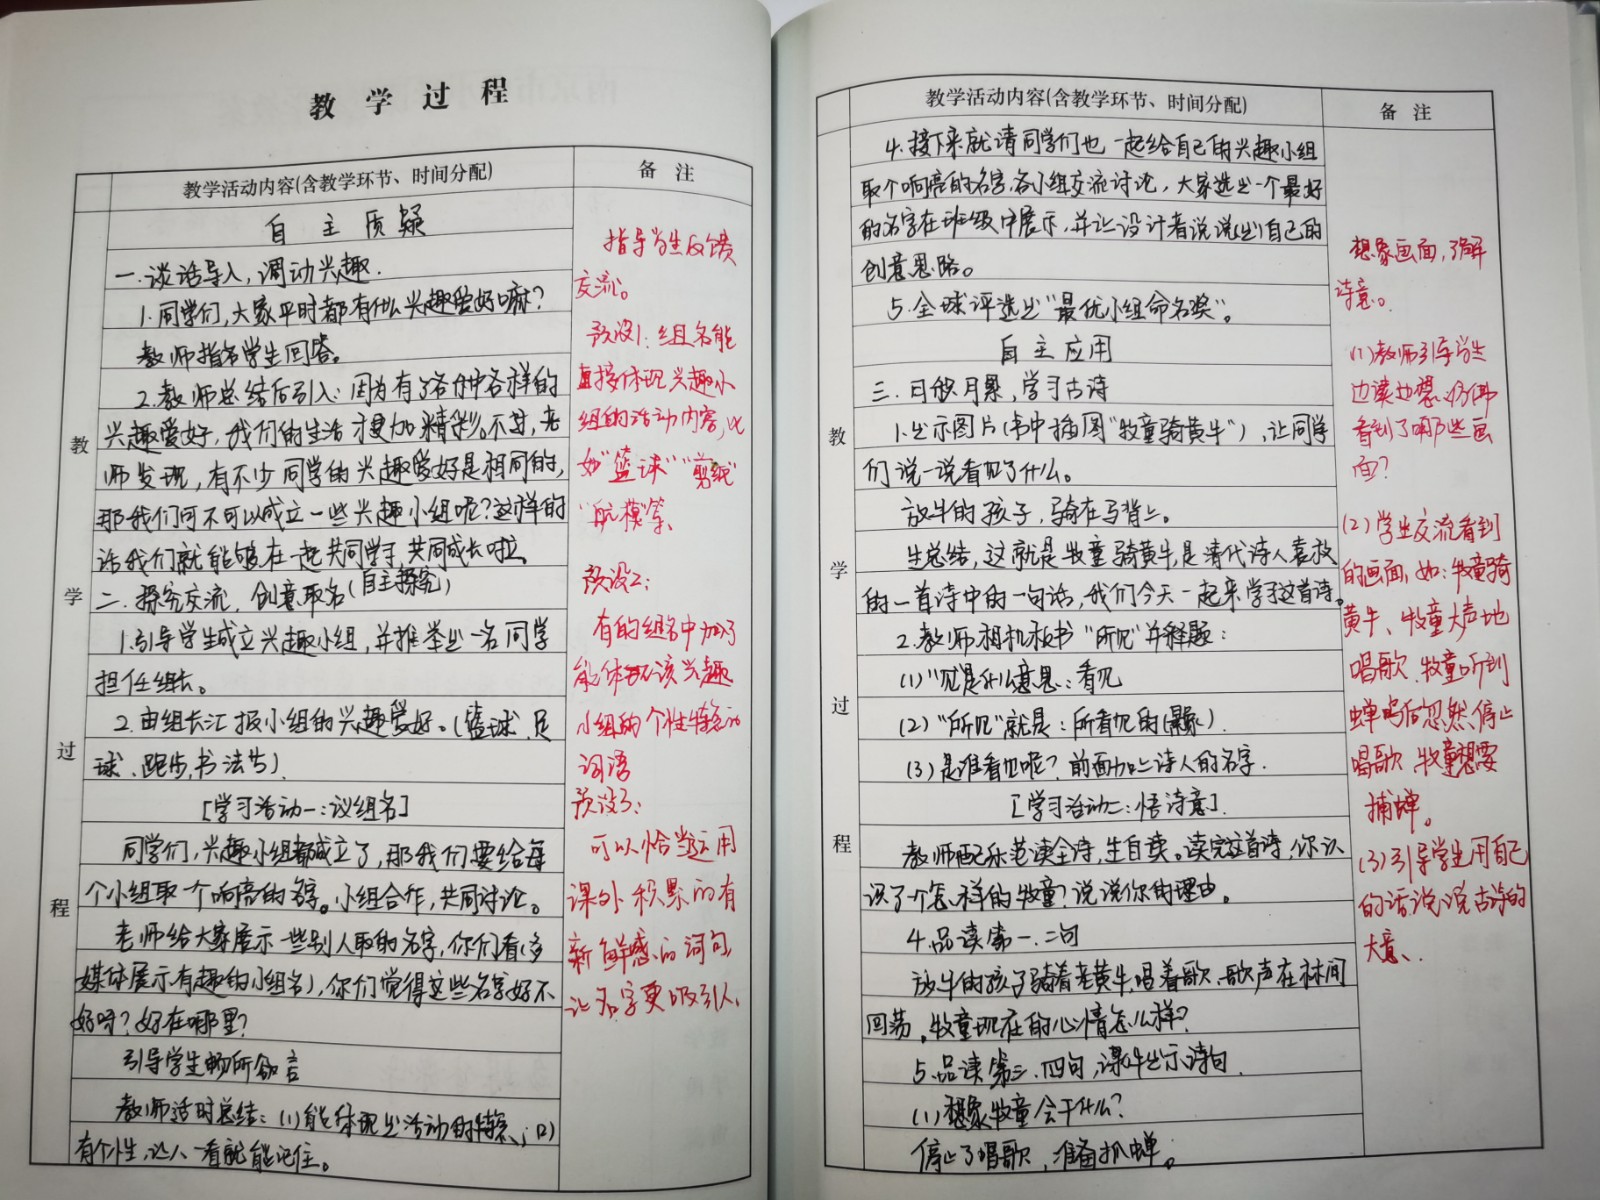 教 学 过 程
教学活动内容(含教学环节、时间分配)
备 注
教
学
过
程
自 主 质 疑
一.谈话导入，调动兴趣.
1.同学们,大家平时都有什么兴趣爱好嘛?
教师指名学生回答。
2.教师总结后引入:因为有了各种各样的
兴趣爱好,我们的生活才更加精彩。不过,老
师发现,有不少同学的兴趣爱好是相同的,
那我们可不可以成立一些兴趣小组呢?这样的
话我们就能够在一起共同学习,共同成长啦
二.探究交流,创意取名(自主探究)
1.引导学生成立兴趣小组,并推举出一名同学
担任组长。
2.由组长汇报小组的兴趣爱好。(篮球、足
球、跑步,书法等).
[学习活动一:议组名]
同学们,兴趣小组都成立了,那我们要给每
个小组取一个响亮的名字。小组合作,共同讨论。
老师给大家展示一些别人取的名字,你们看(多
媒体展示有趣的小组名),你们觉得这些名字好不
好呀?好在哪里?
引导学生畅所欲言
教师适时总结:(1)能体现出活动的特点;(2)
有个性,让人一看就能记住。
指导学生反馈
交流。
预设1:组名能
直接体现兴趣小
组的活动内容,比
如"篮球""剪纸"
"航模"等、
预设2:
有的组名中加了
能体现该兴趣
小组的个性特征的
词语
预设3:
可以恰当运用
课外积累的有
新鲜感的词句,
让名字更吸引人、
教学活动内容(含教学环节、时间分配)
备 注
教
学
过
程
4.接下来就请同学们也一起给自己的兴趣小组
取个响亮的名字,各小组交流讨论,大家选出一个最好
的名字在班级中展示,并让设计者说说(出)自己的
创意思路。
5.全球评选出"最优小组命名奖"。
自 主 应 用
三.日积月累,学习古诗
1.出示图片(书中插图"牧童骑黄牛"),让同学
们说一说看见了什么。
放牛的孩子,骑在马背上。
生总结,这就是牧童骑黄牛,是清代诗人袁枚
的一首诗中的一句话,我们今天一起来学习这首诗。
2.教师相机板书"所见"并释题:
(1)"见"是什么意思:看见
(2)"所见"就是:所看见的(景象)
(3)是谁看见呢?前面加上诗人的名字.
[学习活动二:悟诗意].
教师配乐范读全诗,生自读。读完这首诗,你认
识了一个怎样的牧童?说说你的理由。
4.品读第一、二句
放牛的孩子骑着老黄牛,唱着歌,歌声在林间
回荡。牧童现在的心情怎么样?
5.品读第三、四句,课件出示诗句.
(1)想象牧童会干什么?
停止了唱歌,准备抓蝉。
想象画面,了解
诗意。
(1)教师引导学生
边读边想:仿佛
看到了哪些画
面?
(2)学生交流看到
的画面,如:牧童骑
黄牛、牧童大声地
唱歌、牧童听到
蝉鸣后忽然停止
唱歌、牧童想要
捕蝉。
(3)引导学生用自己
的话说说古诗的
大意、.